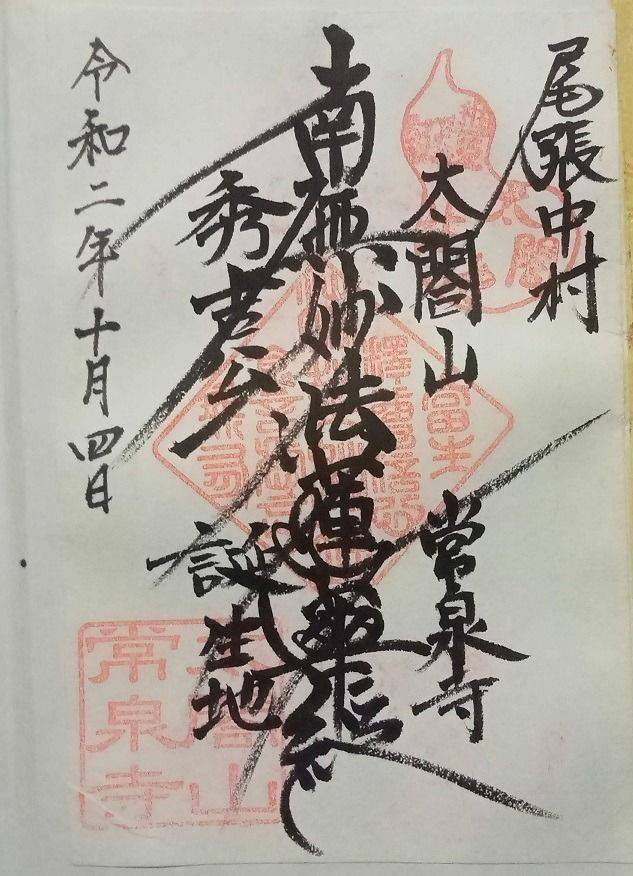 尾張中村
太閤山 常泉寺
南無妙法蓮華経
秀吉公誕生地
令和二年十月四日
太閤山
常泉寺